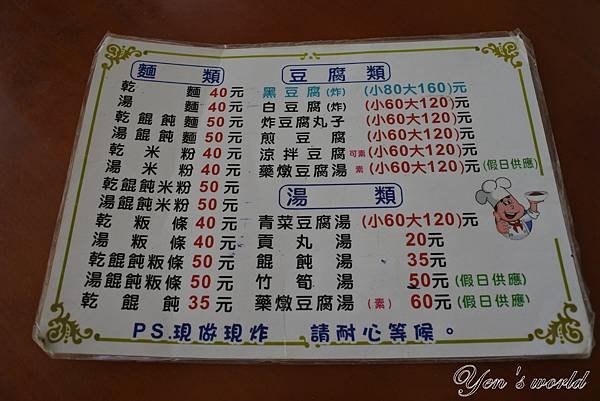 麵類
乾麵 40元
湯麵 40元
乾餛飩麵 50元
湯餛飩麵 50元
乾米粉 40元
湯米粉 40元
乾餛飩米粉 50元
湯餛飩米粉 50元
乾粄條 40元
湯粄條 40元
乾餛飩粄條 50元
湯餛飩粄條 50元
乾餛飩 35元
豆腐類
黑豆腐(炸) (小80大160)元
白豆腐(炸) (小60大120)元
炸豆腐丸子 (小60大120)元
煎豆腐 (小60大120)元
涼拌豆腐 可素 (小60大120)元
藥燉豆腐湯 素 (小60大120)元 (假日供應)
湯類
青菜豆腐湯 (小60大120)元
貢丸湯 20元
餛飩湯 35元
竹筍湯 50元 (假日供應)
藥燉豆腐湯 (素) 60元 (假日供應)
PS.現做現炸 請耐心等候。
Yen's world